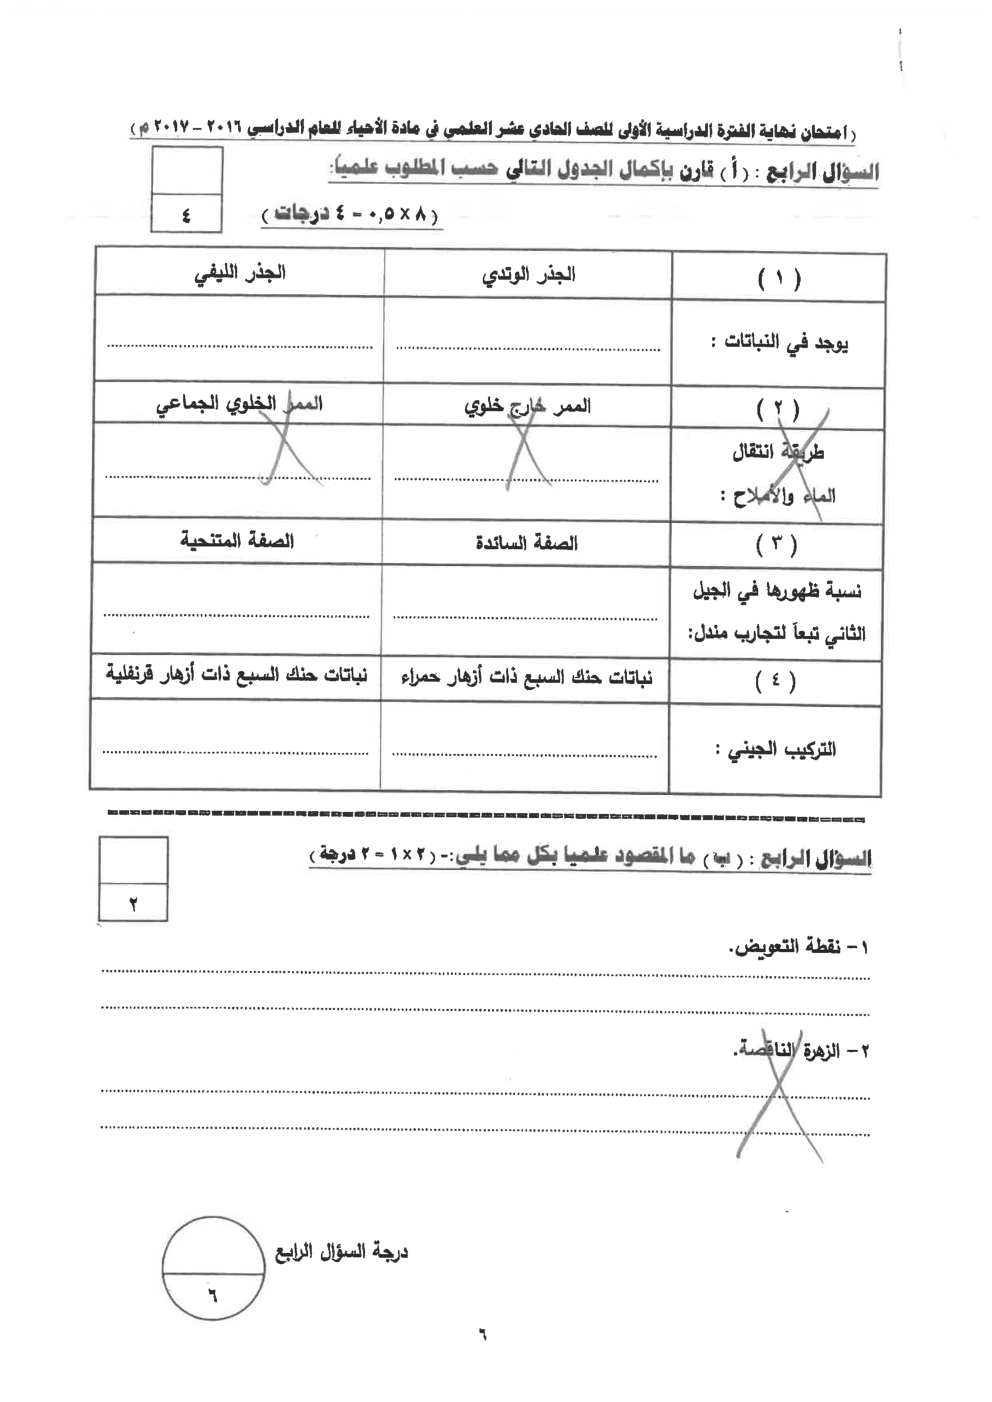 ( امتحان نهاية الفترة الدراسية الأولى للصف الحادي عشر العلمي في مادة الأحياء للعام الدراسي ٢٠١٦ – ٢٠١٧ م )
السؤال الرابع : ( أ ) قارن بإكمال الجدول التالي حسب المطلوب علمياً:
( ٨ × ٠,٥ = ٤ درجات )
٤
( ١ ) الجذر الوتدي الجذر الليفي
يوجد في النباتات :
( ٢ ) الممر خارج خلوي الممر الخلوي الجماعي
طريقة انتقال
الماء والأملاح :
( ٣ ) الصفة السائدة الصفة المتنحية
نسبة ظهورها في الجيل
الثاني تبعاً لتجارب مندل:
( ٤ ) نباتات حنك السبع ذات أزهار حمراء نباتات حنك السبع ذات أزهار قرنفلية
التركيب الجيني :
السؤال الرابع : ( ب ) ما المقصود علميا بكل مما يلي:- ( ٢ × ١ = ٢ درجة )
٢
١ – نقطة التعويض.
٢ – الزهرة الناقصة.
درجة السؤال الرابع
٦
٦